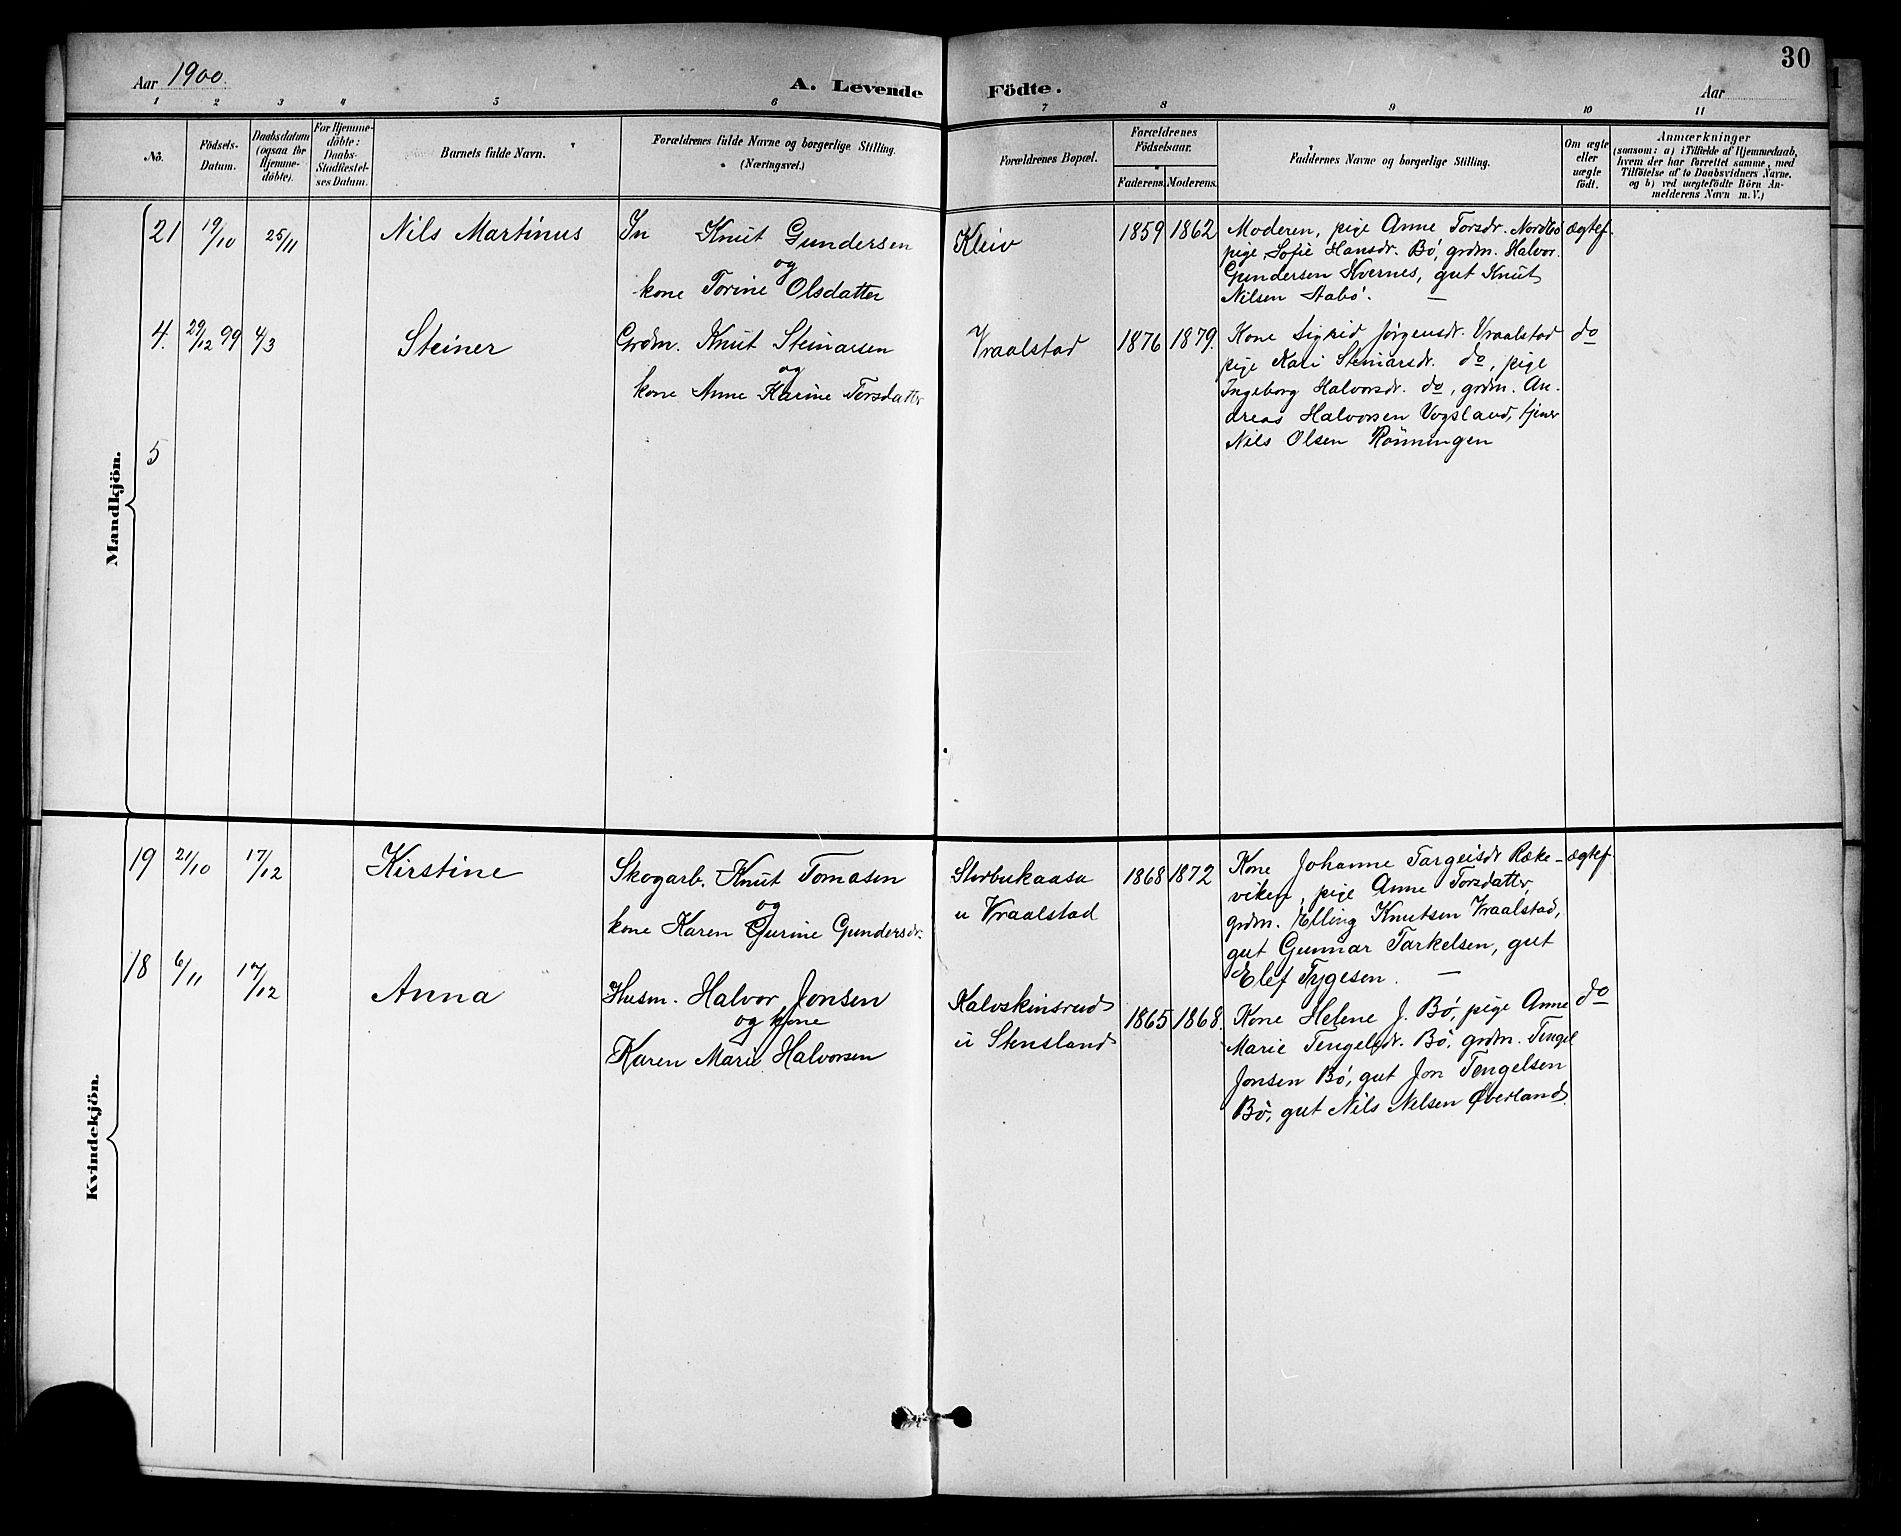 30
Aar 1900.
A. Levende Födte.
Aar
1 2 3 4 5 6 7 8 9 10 11
No.
Födsels-Datum.
Daabsdatum (ogsaa for Hjemme-döbte).
For Hjemme-döbte: Daabs-Stadfæstel-ses Datum.
Barnets fulde Navn.
Forældrenes fulde Navne og borgerlige Stilling. (Næringsvei.)
Forældrenes Bopæl.
Forældrenes Födselsaar.
Faderens. Moderens.
Faddernes Navne og borgerlige Stilling.
Om ægte eller uægte födt.
Anmærkninger
(saasom: a) i Tilfælde af Hjemmedaab,
hvem der har forrettet samme, med
Tilföielse af to Daabsvidners Navne.
og b) ved uægtefödte Börn An-
melderens Navn m. V.)
Mandkjön.
21 19/10 25/11 Nils Martinus In Knut Gundersen
og
kone Torine Olsdatter
Kleiv 1859 1862
Moderen, pige Anne Torsdr. Nordbö ægtef.
pige Sofie Hansdr. Bö, grdm. Halvor
Gundersen Kvernes, gut Knut
Nilsen Aabö. —
4. 29/12 99 4/3 Steiner Grdm. Knut Steinarsen
og
kone Anne Karine Torsdatter
Vraalstad 1876 1879.
Kone Sigrid Jørgensdr. Vraalstad do
pige Kari Steinarsdr. do, pige
Ingeborg Halvorsdr. do, grdm. An-
dreas Halvorsen Vogsland, tjener
Nils Olsen Rönningen
5
Kvindekjön.
19 21/10 17/12 Kirstine Skogarb. Knut Tomasen
og
kone Karen Gurine Gundersdr.
u Vraalstad 1868 1872
Kone Johanne Targeisdr Ræke- ægtef.
viken, pige Anne Torsdatter,
grdm. Elling Knutsen Vraalstad,
gut Gunnar Tarkelsen, gut
Elef Tygesen. —
18 6/11 17/12 Anna Husm. Halvor Jonsen
og kone
Karen Marie Halvorsen
Kalvskinsrud
u Stensland 1865 1868.
Kone Helene J. Bö, pige Anne do
Marie Tengelsdr. Bö, grdm. Tengel
Jonsen Bö, gut Jon Tengelsen
Bö, gut Nils Nelsen Øverland.